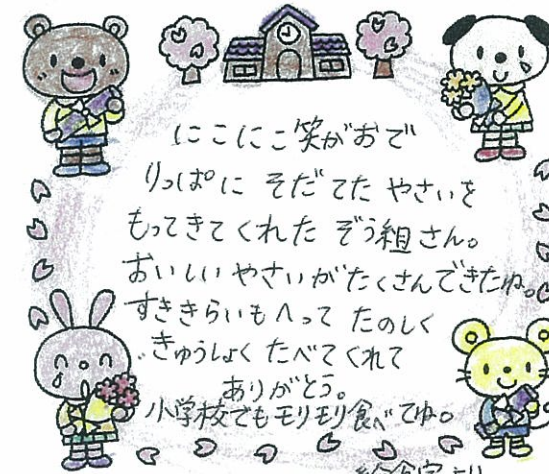 にこにこ笑がおで
りっぱに そだてた やさいを
もってきてくれた ぞう組さん。
おいしい やさいが たくさんできたね。
すききらいも へって たのしく
きゅうしょく たべてくれて
ありがとう。
小学校でもモリモリ食べてね。